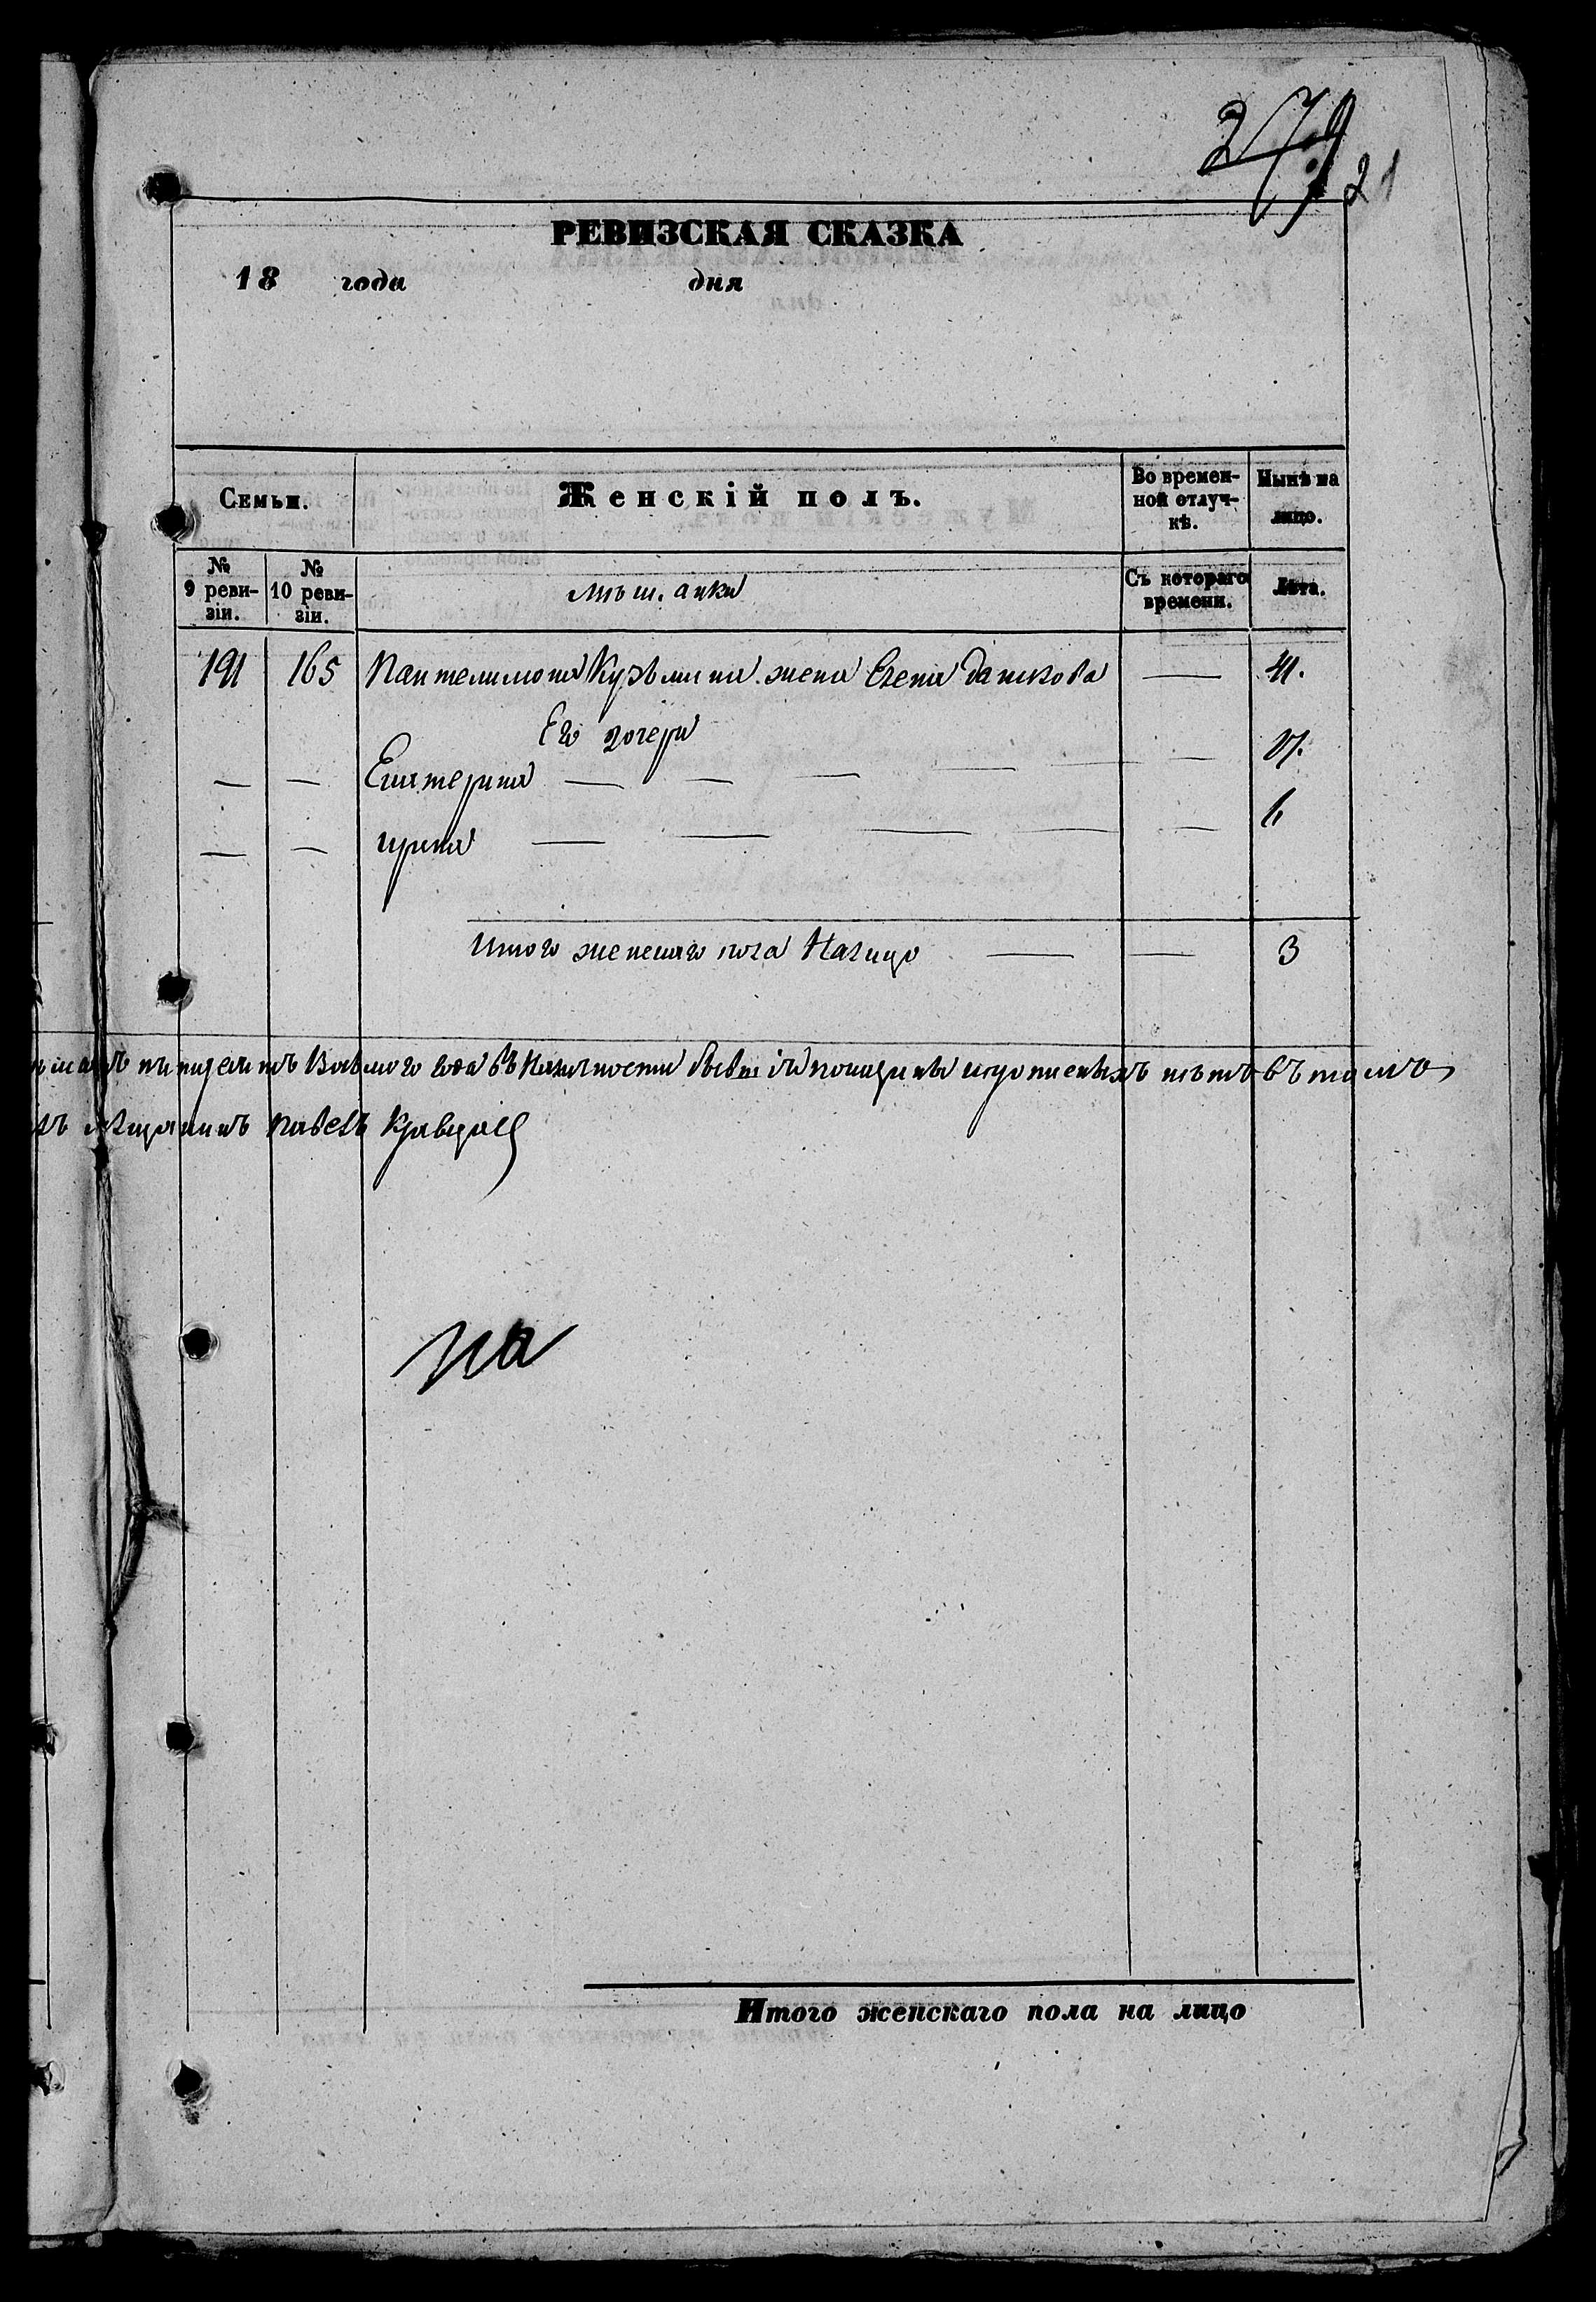 279
21
РЕВИЗСКАЯ СКАЗКА
18 года дня
Семьи. Женскій полъ. Во времен-ной отлуч-кѣ. Нынѣ на лицо.
№ 9 реви-зіи. № 10 реви-зіи. мѣщанки Съ котораго времени. Лѣта.
191 165 Пантелимона Кузьмина жена Елена Данкова — 41.
Его дочери
— — Екатерина — — — — — — 17.
— — Ирина — — — — — 6
Итого женскаго пола Налицо — — 3
года въ Наличности
мѣщанинъ Павелъ
на
Итого женскаго пола на лицо